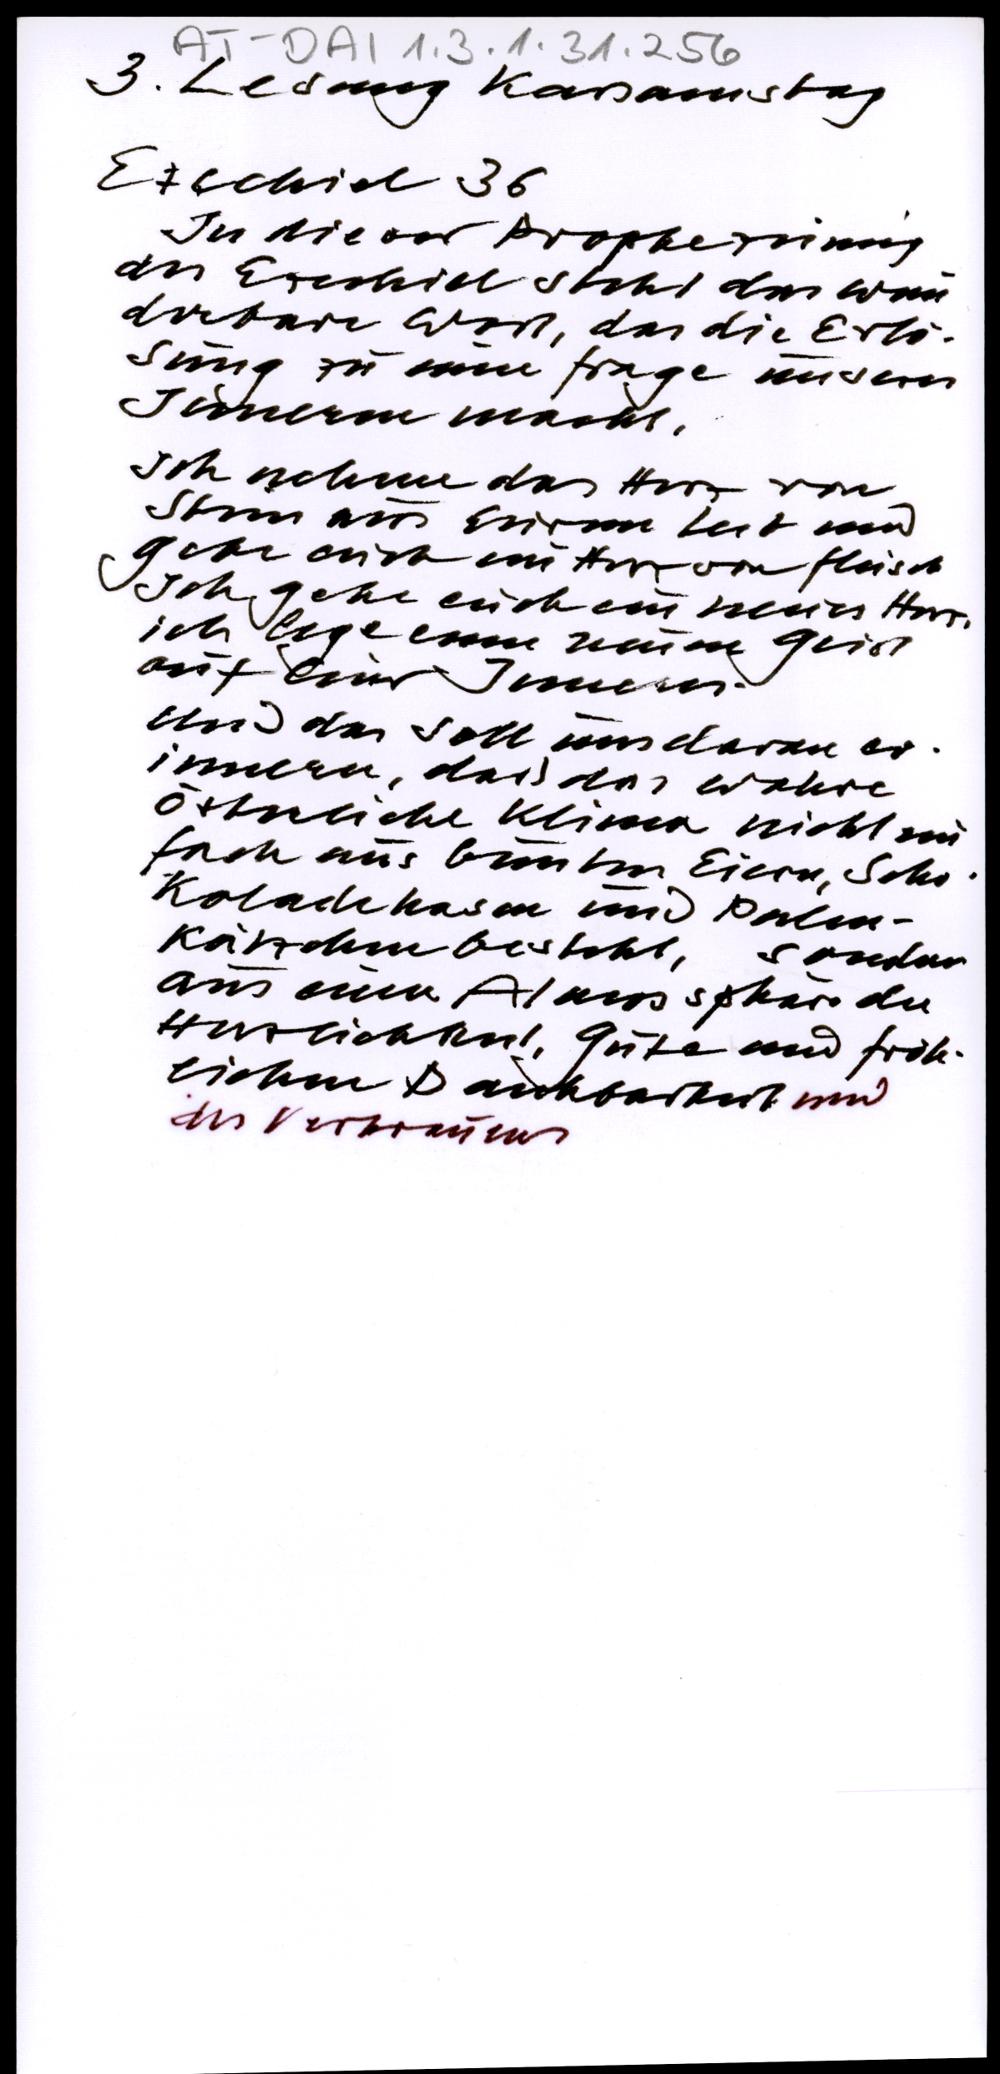 AT-DAI 1.3.1.31.256
3. Lesung Karsamstag
Ezechiel 36
In dieser Prophezeiung
des Ezechiel steht das wun
derbare Wort, das die Erlö-
sung zu einer Frage unseres
Inneren macht.
Ich nehme das Herz von
Stein aus Eurem Leib und
gebe euch ein Herz von Fleisch
Ich gebe euch ein neues Herz,
ich lege einen neuen Geist
auf Euer Inneres.
Und das soll uns daran er-
innern, dass das wahre
österliche Klima nicht ein
fach aus bunten Eiern, Scho-
koladehasen und Palm-
kätzchen besteht, sondern
aus einer Atmossphäre der
Herzlichkeit, Güte und fröh-
lichen Dankbarkeit und
des Vertrauens